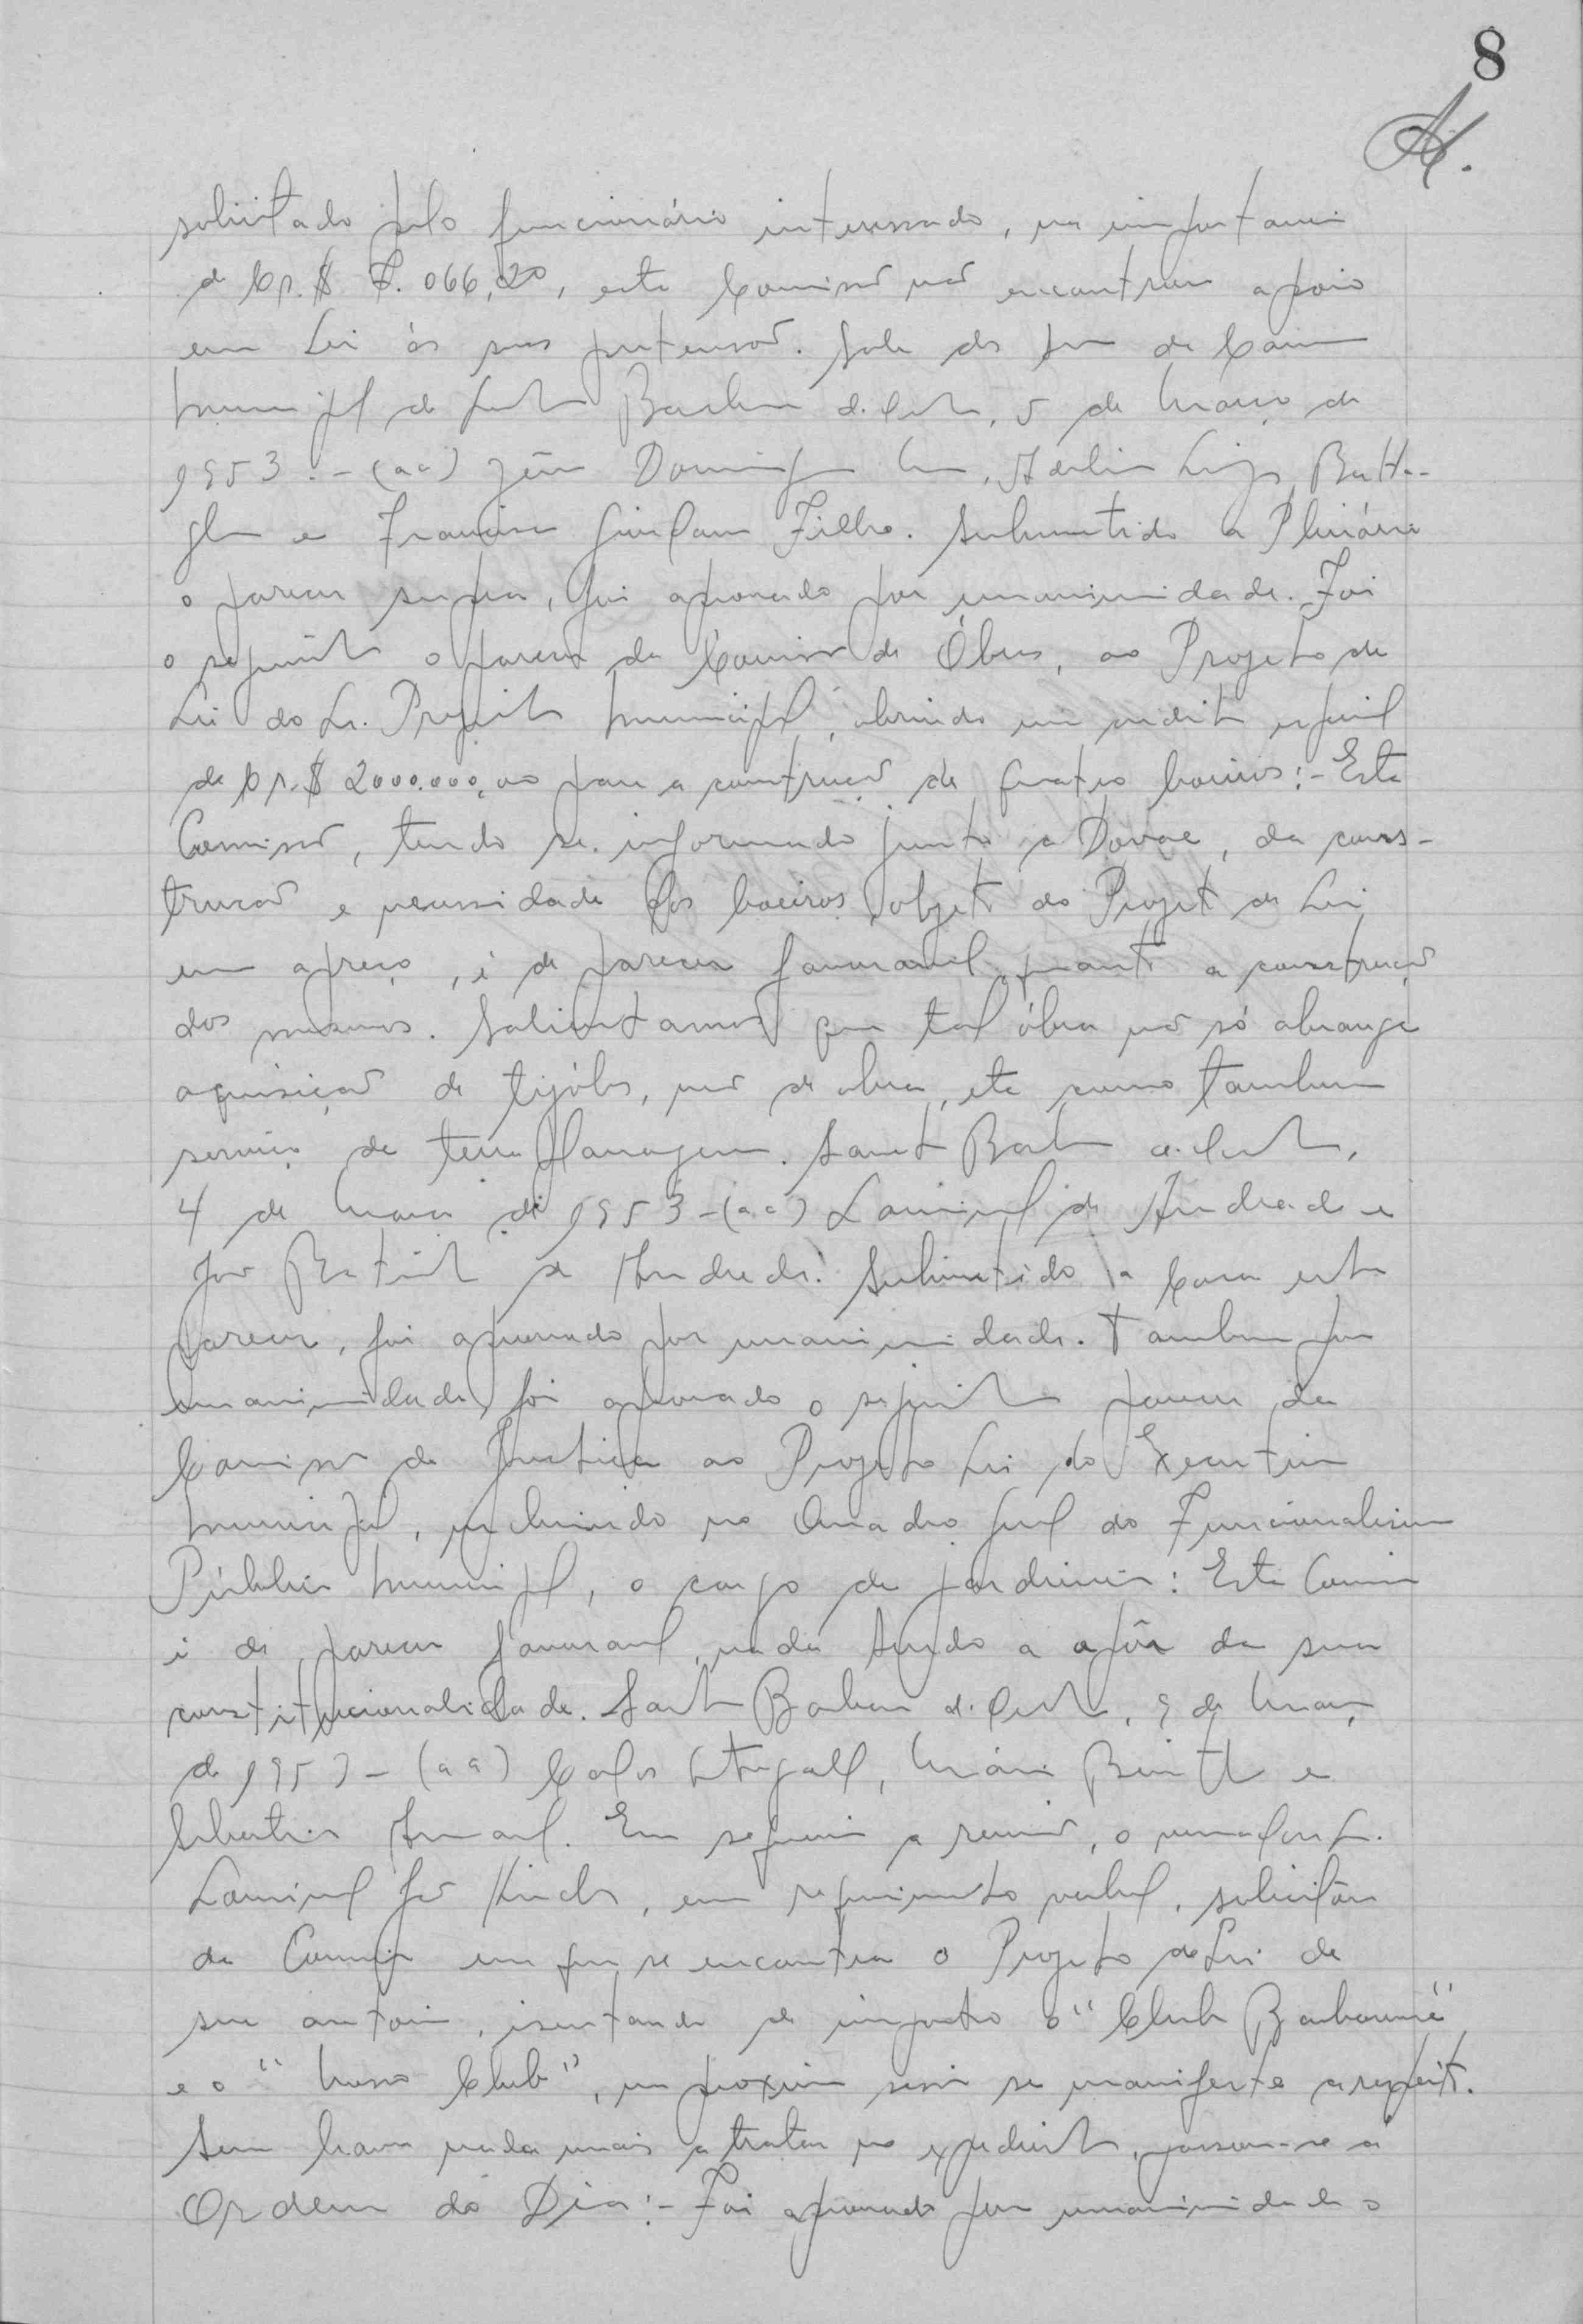 8
solicitado pelo funcionário interessado, na importancia
de Cr.$ 7.066,20, esta Comissão não encontrou apoio
em Lei às suas pretensão. Sala das da Camara
Municipal de Santa Barbara d'Oeste, 5 de Março de
1953.-(aa) Domingos
e Francisco Filho. Submetido a Plenário
o parecer supra, foi aprovado por unanimidade. Foi
o seguinte o parecer da Comissão de Óbras, ao Projeto de
Lei do Sr. Prefeito Municipal, abrindo um credito especial
de Cr.$ 2000.000,00 para a construção de quatro boeiros:- Esta
Comissão, tendo se informado junto a, da cons-
trucão e necessidade dos boeiros, objeto do Projeto de Lei
em apreço, é de parecer favoravel quanto a construção
dos mesmos. Salientamos que tal óbra não só abrange
aquisição de tijólos, mão de obra, etc como tambem
serviço de terraplanagem. Santa Barbara d'Oeste,
4 de Março de 1953-(aa) de Andrade e
de Andrade. Submetido a Casa este
parecer, foi aprovado por unanimidade. Tambem por
unanimidade, foi aprovado o seguinte parecer da
Comissão de Justiça ao Projeto Lei do Executivo
Municipal, incluindo no Quadro Geral do Funcionalismo
Público Municipal, o cargo de jardineiro: Esta Comissão
é de parecer favoravel, nada tendo a opôr da sua
constitucionalidade. Santa Barbara d'Oeste, 9 de Março
de 1953-(aa) Carlos Steagall, Mário e
. Em seguida a reunião, o vereador Sr.
, em requerimento verbal, solicitou
da Comissão em que se encontra o Projeto de Lei de
sua autoria, isentando de imposto o "Club Barbarense"
e o " Club", na proxima sessão se manifeste a respeito.
Sem haver nada mais a tratar no expediente, passou-se a
Ordem do Dia:- Foi aprovado por unanimidade o